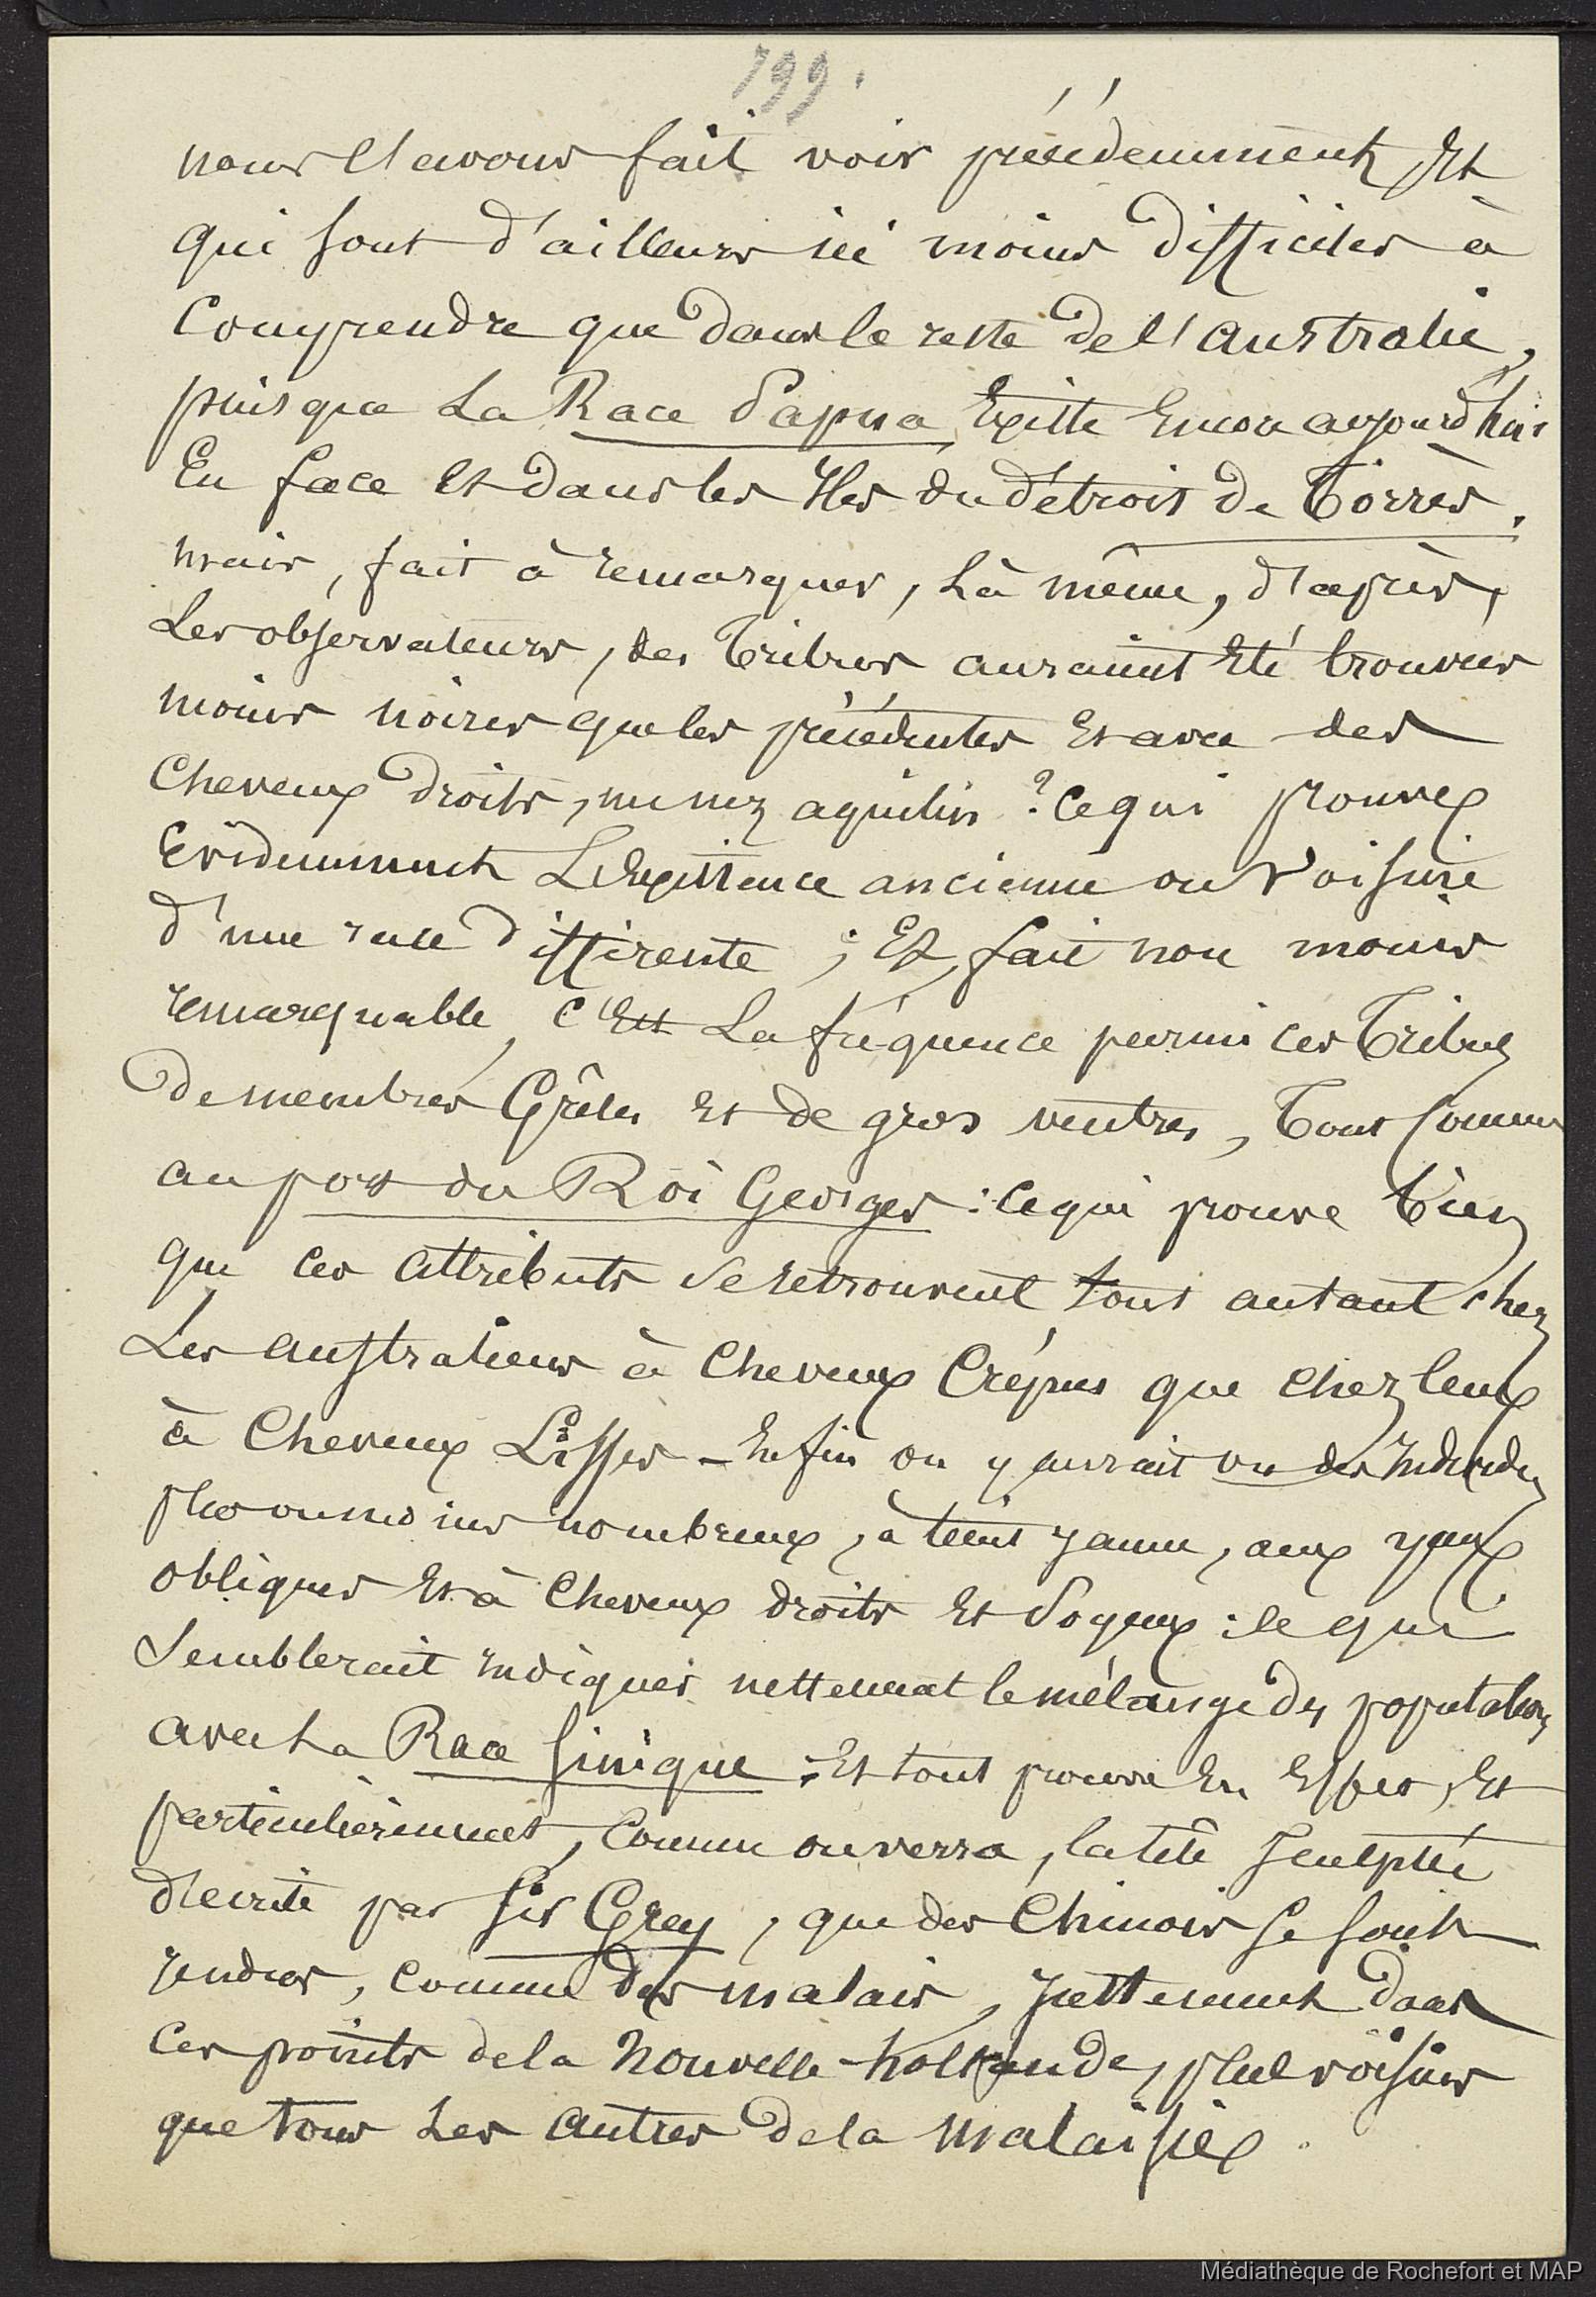 199.
nous l'avons fait voir précédemment, Et
qui sont d'ailleurs ici moins difficiles à
Comprendre que dans le reste de l'australie,
puisque La Race Papua Existe Encore aujourd'hui
En face et dans les Iles du détroit de Torrès.
mais, fait à remarquer, Là même, d'après,
Les observateurs, des Tribus auraient Eté trouvées
moins noires que les précédentes Et avec des
Cheveux droits, un nez aquilin ? Ce qui prouve
Evidemment L'Existence ancienne ou Voisine
d'une race différente ; Et, fait non moins
remarquable, C'Est La fréquence parmi ces Tribus
de membres Grêles Et de gros ventres, Tout Comme
au port du Roi Georges : Ce qui prouve bien
que Ces attributs se retrouvent tout autant chez
Les australiens à Cheveux Crépus que chez Ceux
à Cheveux Lisses - Enfin on y aurait vu des Individus
plus ou moins nombreux, à teint jaune, aux yeux
obliques Et à Cheveux droits Et Soyeux : ce qui
Semblerait indiquer nettement le mélange des populations
avec La Race Sinique ; Et tout prouve En Effet, Et
particulièrement, Comme on verra, la tête Sculptée
décrite par Sir Grey, que des Chinois se sont
rendus, comme des malais, nettement dans
Ces points de la Nouvelle-hollande, plus voisins
que tous Les autres de la Malaisie.
Médiathèque de Rochefort et MAP